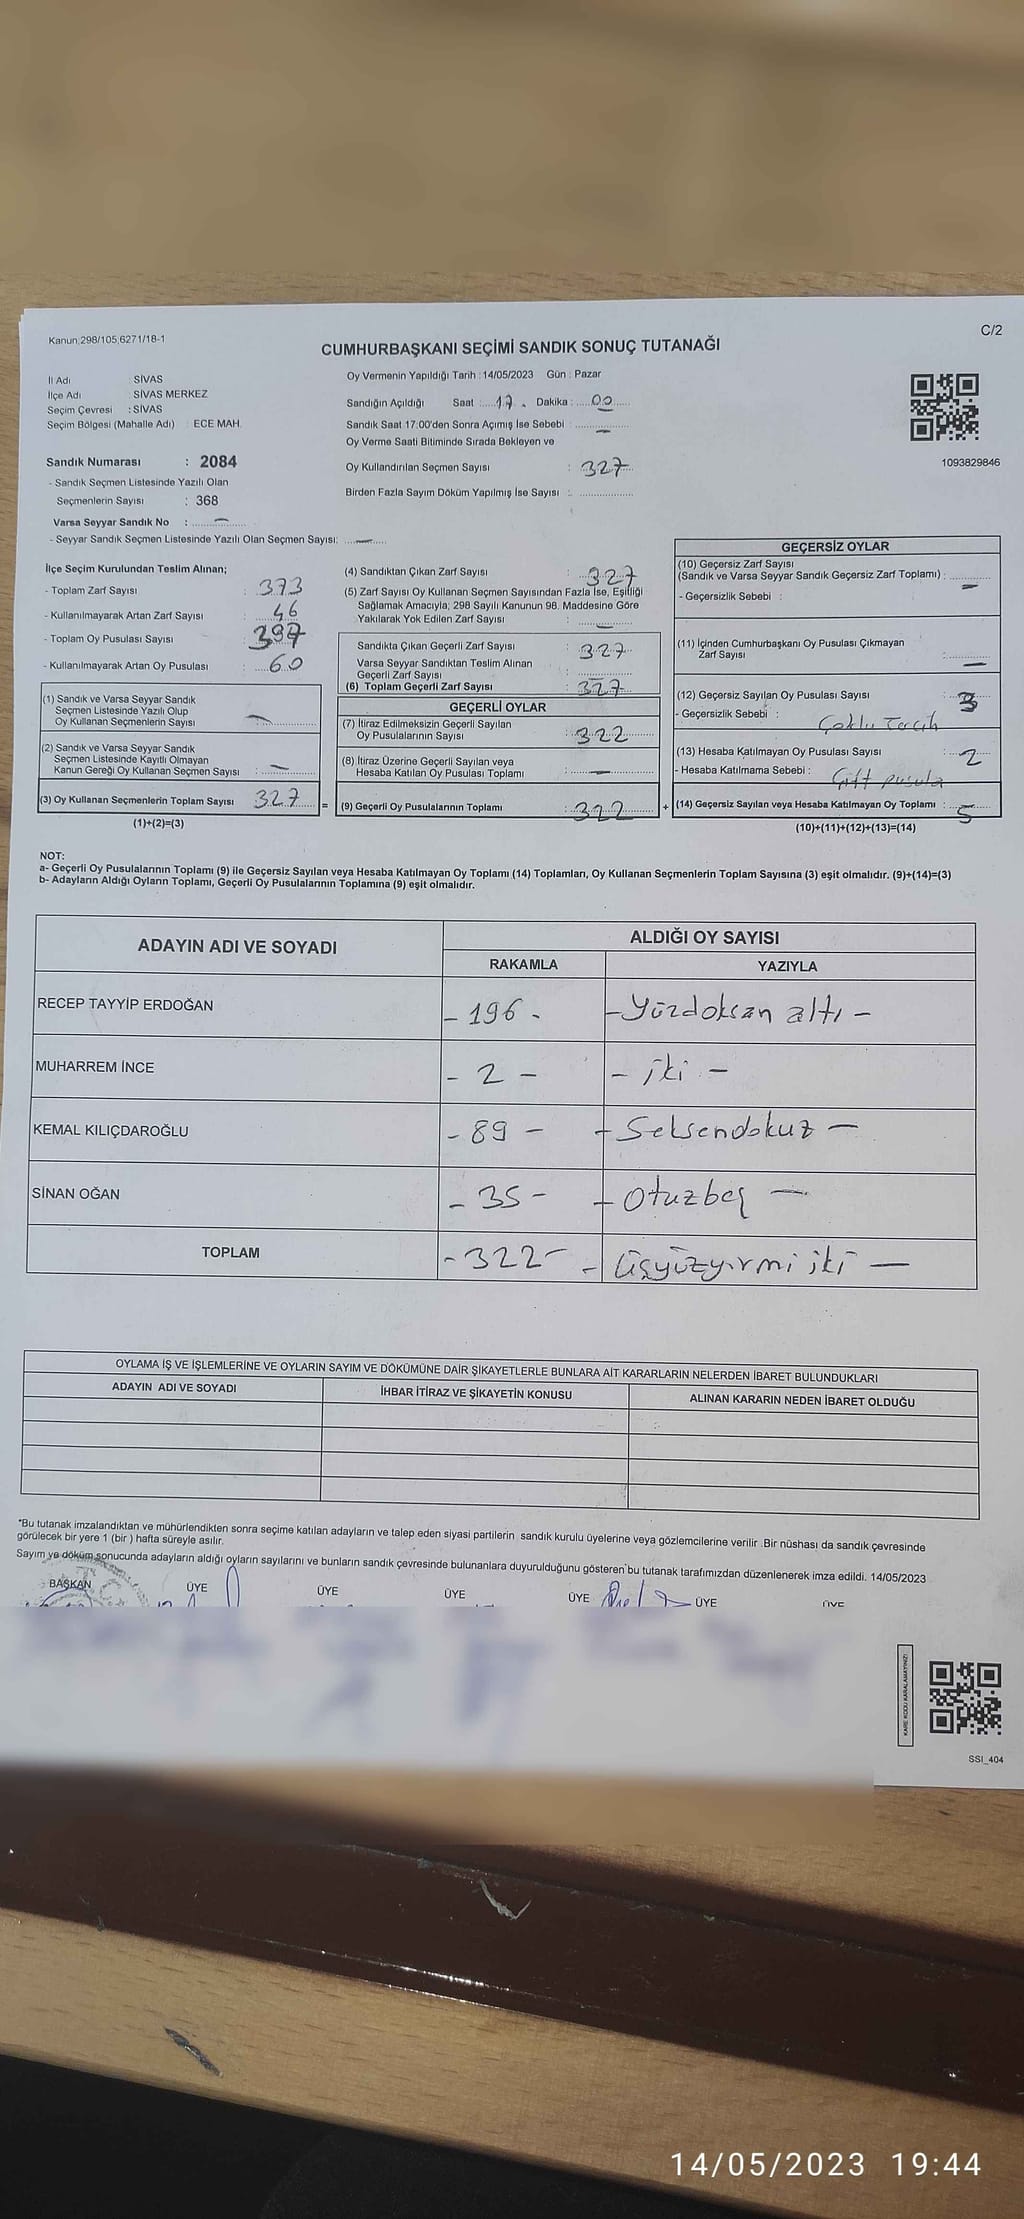 Kanun;298/105;6271/18-1
C/2
CUMHURBAŞKANI SEÇİMİ SANDIK SONUÇ TUTANAĞI
İl Adı : SİVAS
İlçe Adı : SİVAS MERKEZ
Seçim Çevresi : SİVAS
Seçim Bölgesi (Mahalle Adı) : ECE MAH.
Sandık Numarası : 2084
- Sandık Seçmen Listesinde Yazılı Olan
Seçmenlerin Sayısı : 368
Varsa Seyyar Sandık No : —
- Seyyar Sandık Seçmen Listesinde Yazılı Olan Seçmen Sayısı: —
Oy Vermenin Yapıldığı Tarih : 14/05/2023 Gün : Pazar
Sandığın Açıldığı Saat : 17 Dakika : 00
Sandık Saat 17:00'den Sonra Açımış İse Sebebi : —
Oy Verme Saati Bitiminde Sırada Bekleyen ve
Oy Kullandırılan Seçmen Sayısı : 327
Birden Fazla Sayım Döküm Yapılmış İse Sayısı :
1093829846
İlçe Seçim Kurulundan Teslim Alınan;
- Toplam Zarf Sayısı : 373
- Kullanılmayarak Artan Zarf Sayısı : 46
- Toplam Oy Pusulası Sayısı : 387
- Kullanılmayarak Artan Oy Pusulası : 60
(1) Sandık ve Varsa Seyyar Sandık
Seçmen Listesinde Yazılı Olup
Oy Kullanan Seçmenlerin Sayısı : —
(2) Sandık ve Varsa Seyyar Sandık
Seçmen Listesinde Kayıtlı Olmayan
Kanun Gereği Oy Kullanan Seçmen Sayısı : —
(3) Oy Kullanan Seçmenlerin Toplam Sayısı : 327 =
(1)+(2)=(3)
(4) Sandıktan Çıkan Zarf Sayısı : 327
(5) Zarf Sayısı Oy Kullanan Seçmen Sayısından Fazla İse, Eşitliği
Sağlamak Amacıyla; 298 Sayılı Kanunun 98. Maddesine Göre
Yakılarak Yok Edilen Zarf Sayısı : —
Sandıkta Çıkan Geçerli Zarf Sayısı : 327
Varsa Seyyar Sandıktan Teslim Alınan
Geçerli Zarf Sayısı :
(6) Toplam Geçerli Zarf Sayısı : 327
GEÇERLİ OYLAR
(7) İtiraz Edilmeksizin Geçerli Sayılan
Oy Pusulalarının Sayısı : 322
(8) İtiraz Üzerine Geçerli Sayılan veya
Hesaba Katılan Oy Pusulası Toplamı : —
(9) Geçerli Oy Pusulalarının Toplamı : 322 +
GEÇERSİZ OYLAR
(10) Geçersiz Zarf Sayısı
(Sandık ve Varsa Seyyar Sandık Geçersiz Zarf Toplamı) : —
- Geçersizlik Sebebi :
(11) İçinden Cumhurbaşkanı Oy Pusulası Çıkmayan
Zarf Sayısı : —
(12) Geçersiz Sayılan Oy Pusulası Sayısı : 3
- Geçersizlik Sebebi : Çoklu Tercih
(13) Hesaba Katılmayan Oy Pusulası Sayısı : 2
- Hesaba Katılmama Sebebi : Çift pusula
(14) Geçersiz Sayılan veya Hesaba Katılmayan Oy Toplamı : 5
(10)+(11)+(12)+(13)=(14)
NOT:
a- Geçerli Oy Pusulalarının Toplamı (9) ile Geçersiz Sayılan veya Hesaba Katılmayan Oy Toplamı (14) Toplamları, Oy Kullanan Seçmenlerin Toplam Sayısına (3) eşit olmalıdır. (9)+(14)=(3)
b- Adayların Aldığı Oyların Toplamı, Geçerli Oy Pusulalarının Toplamına (9) eşit olmalıdır.
ADAYIN ADI VE SOYADI
ALDIĞI OY SAYISI
RAKAMLA YAZIYLA
RECEP TAYYİP ERDOĞAN - 196 - - Yüzdoksan altı -
MUHARREM İNCE - 2 - - iki -
KEMAL KILIÇDAROĞLU - 89 - - Seksendokuz -
SİNAN OĞAN - 35 - - Otuzbeş -
TOPLAM - 322 - - Üçyüzyirmi iki -
OYLAMA İŞ VE İŞLEMLERİNE VE OYLARIN SAYIM VE DÖKÜMÜNE DAİR ŞİKAYETLERLE BUNLARA AİT KARARLARIN NELERDEN İBARET BULUNDUKLARI
ADAYIN ADI VE SOYADI İHBAR İTİRAZ VE ŞİKAYETİN KONUSU ALINAN KARARIN NEDEN İBARET OLDUĞU
*Bu tutanak imzalandıktan ve mühürlendikten sonra seçime katılan adayların ve talep eden siyasi partilerin sandık kurulu üyelerine veya gözlemcilerine verilir .Bir nüshası da sandık çevresinde
görülecek bir yere 1 (bir ) hafta süreyle asılır.
Sayım ve döküm sonucunda adayların aldığı oyların sayılarını ve bunların sandık çevresinde bulunanlara duyurulduğunu gösteren bu tutanak tarafımızdan düzenlenerek imza edildi. 14/05/2023
BAŞKAN ÜYE ÜYE ÜYE ÜYE ÜYE ÜYE
KARE KODU KARALAMAYINIZ!
SSI_404
14/05/2023 19:44